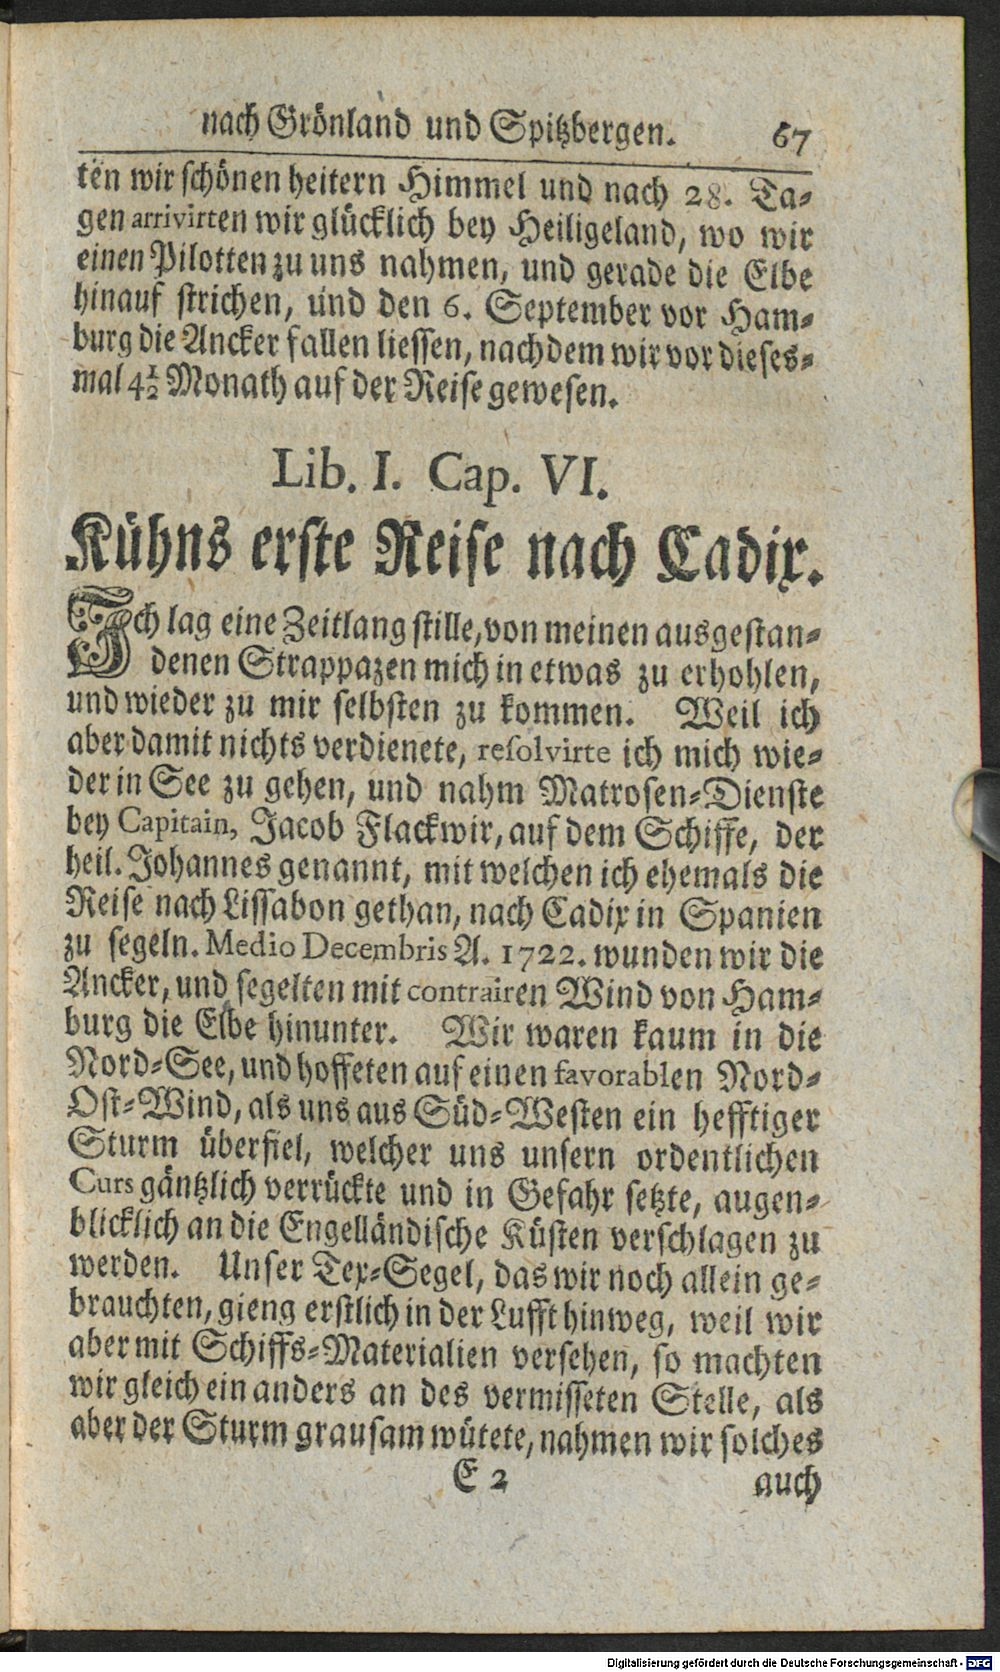 nach Grönland und Spitzbergen. 67
ten wir schönen heitern Himmel und nach 28. Ta-
gen arrivirten wir glücklich bey Heiligeland, wo wir
einen Pilotten zu uns nahmen, und gerade die Elbe
hinauf strichen, und den 6. September vor Ham-
burg die Ancker fallen liessen, nachdem wir vor dieses-
mal 4½ Monath auf der Reise gewesen.
Lib. I. Cap. VI.
Kühns erste Reise nach Cadix.
Ich lag eine Zeitlang stille, von meinen ausgestan-
denen Strappazen mich in etwas zu erhohlen,
und wieder zu mir selbsten zu kommen. Weil ich
aber damit nichts verdienete, resolvirte ich mich wie-
der in See zu gehen, und nahm Matrosen-Dienste
bey Capitain, Jacob Flackwir, auf dem Schiffe, der
heil. Johannes genannt, mit welchen ich ehemals die
Reise nach Lissabon gethan, nach Cadix in Spanien
zu segeln. Medio Decembris A. 1722. wunden wir die
Ancker, und segelten mit contrairen Wind von Ham-
burg die Elbe hinunter. Wir waren kaum in die
Nord-See, und hoffeten auf einen favorablen Nord-
Ost-Wind, als uns aus Süd-Westen ein hefftiger
Sturm überfiel, welcher uns unsern ordentlichen
Curs gäntzlich verrückte und in Gefahr setzte, augen-
blicklich an die Engelländische Küsten verschlagen zu
werden. Unser Tex-Segel, das wir noch allein ge-
brauchten, gieng erstlich in der Lufft hinweg, weil wir
aber mit Schiffs-Materialien versehen, so machten
wir gleich ein anders an des vermisseten Stelle, als
aber der Sturm grausam wütete, nahmen wir solches
E 2 auch
Digitalisierung gefördert durch die Deutsche Forschungsgemeinschaft - DFG